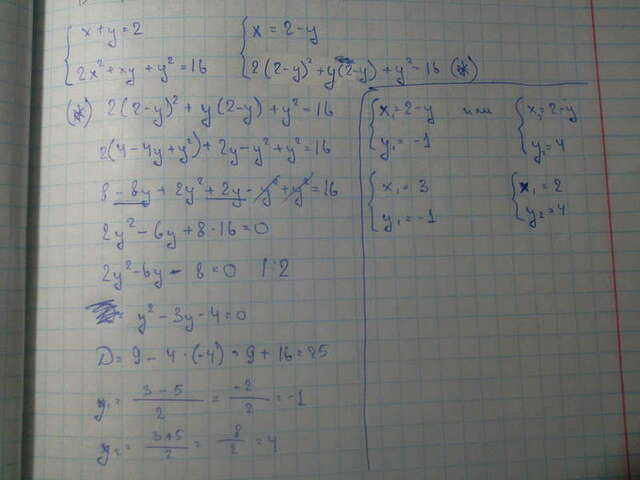 { x + y = 2
2x² + xy + y² = 16
{ x = 2 - y
2(2-y)² + y(2-y) + y² = 16 (*)
(*) 2(2-y)² + y(2-y) + y² = 16
2(4 - 4y + y²) + 2y - y² + y² = 16
8 - 8y + 2y² + 2y - y² + y² = 16
2y² - 6y + 8 - 16 = 0
2y² - 6y - 8 = 0 | : 2
y² - 3y - 4 = 0
D = 9 - 4 · (-4) = 9 + 16 = 25
y₁ = (3 - 5)/2 = -2/2 = -1
y₂ = (3+5)/2 = 8/2 = 4
{ x₁ = 2 - y
y₁ = -1
или
{ x₂ = 2 - y
y₂ = 4
{ x₁ = 3
y₁ = -1
{ x₁ = 2
y₂ = 4